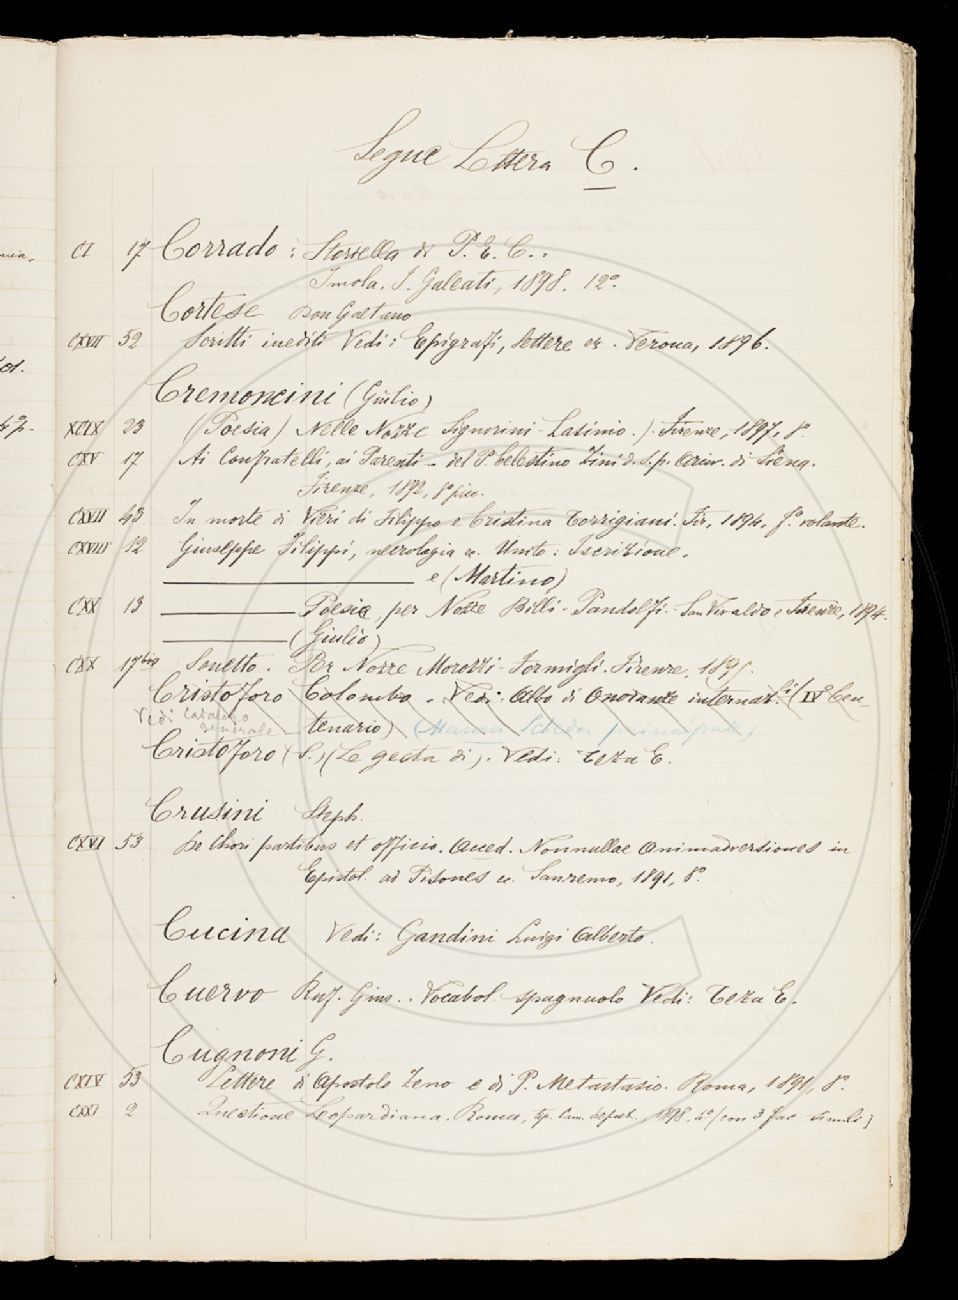 Segue Lettera C.
CI 17 Corrado: Storiella di P. E. C..
Imola. I. Galeati, 1898. 12°.
Cortese Don Gaetano
CXVII 52 Scritti inediti Vedi: Epigrafi, lettere ec. Verona, 1896.
Cremoncini (Giulio)
XCIX 23 (Poesia) Nelle Nozze Signorini-Lasinio.). Firenze, 1897, 8°
CXV 17 Ai Confratelli, ai Parenti del P. Celestino Zini d. S. p. Arciv. di Siena.
Firenze, 1892, 8° picc.
CXVII 43 In morte di Vieri di Filippo e Cristina Torrigiani. Fir, 1894, f.° volante.
CXVIII 12 Giuseppe Filippi, necrologia Unito: Iscrizione.
e (Martino)
CXX 13 Poesia per Nozze Billi-Pandolfi. San Vivaldo e Firenze, 1894.
(Giulio)
CXX 17bis Sonetto. Per Nozze Morozzi-Formigli. Firenze,
Cristoforo Colombo. Vedi: Albo di Onoranze internaz.li (IV° Cen-
Vedi Catalogo tenario) (Manca Scheda principale)
generale
Cristoforo (S.) (Le gesta di). Vedi: Teza E.
Crusini Steph.
CXVI 53 De Chori partibus et officio. Acced. Nonnullae Animadversiones in
Epistol. ad Pisones Sanremo, 1891, 8°
Cucina Vedi: Gandini Luigi Alberto.
Cuervo Ruf. Gius.. Vocabol. spagnuolo Vedi: Teza E.
Cugnoni G.
CXIV 53 Lettere di Apostolo Zeno e di P. Metastasio. Roma, 1891, 8°
CXXI 2 Questione Leopardiana. Roma, tip. Cam. deput., 1898, 4° (con 3 fac-simili)